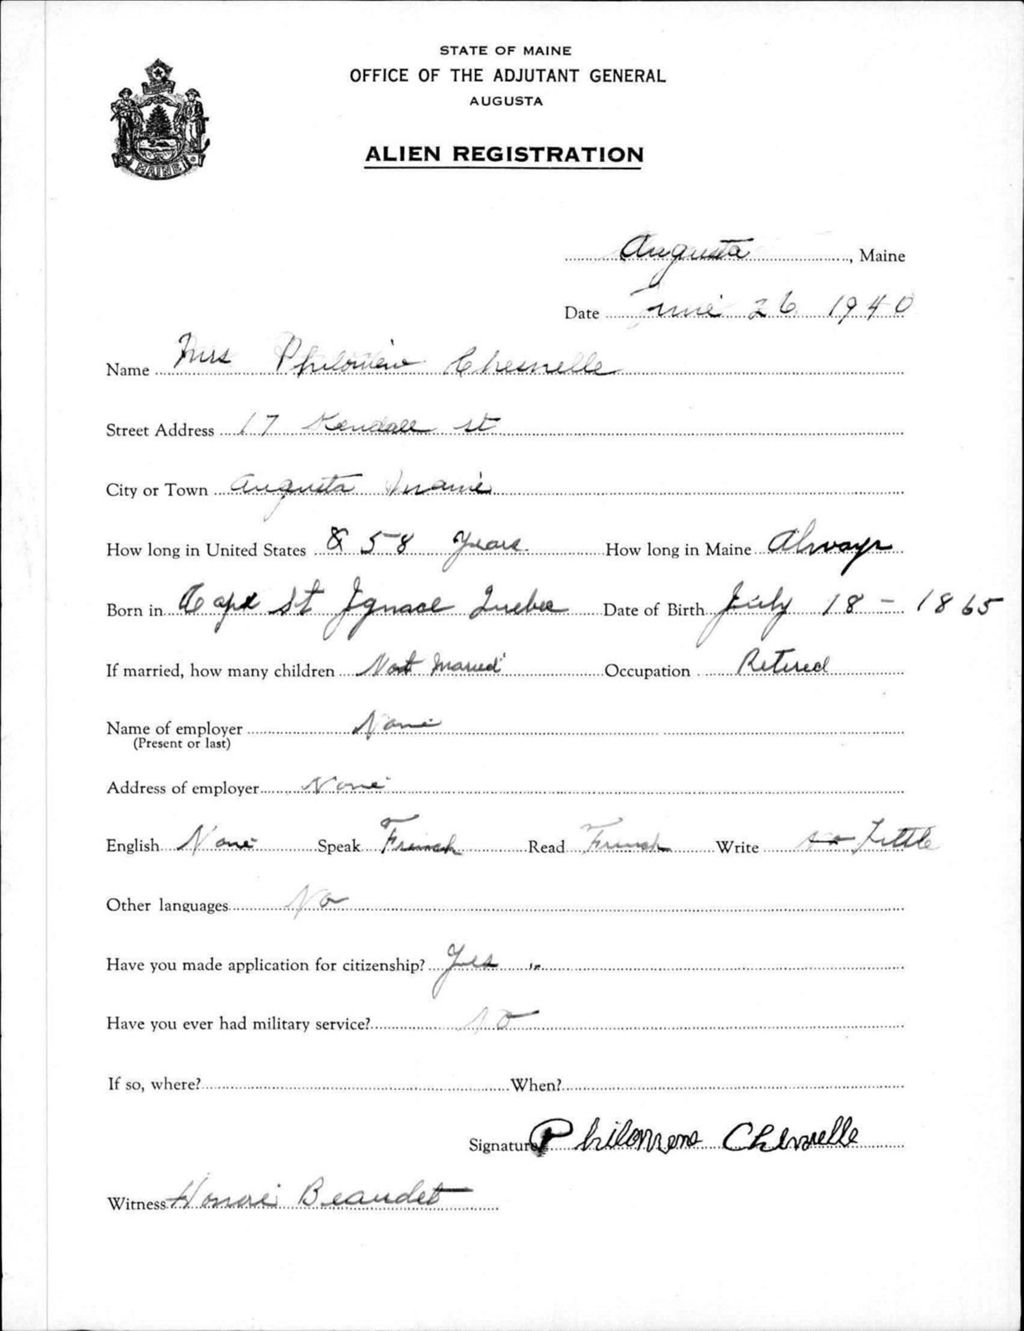 STATE OF MAINE
OFFICE OF THE ADJUTANT GENERAL
AUGUSTA
ALIEN REGISTRATION
MAINE
Augusta, Maine
Date June 26 1940
Name Mrs Philomène Chesnelle
Street Address 17 Kendall st
City or Town Augusta Maine
How long in United States & 58 Years. How long in Maine Always
Born in Cape St Ignace Quebec Date of Birth July 18 - 1865
If married, how many children Not Married Occupation Retired
Name of employer None
(Present or last)
Address of employer None
English None Speak French Read French Write Little
Other languages No
Have you made application for citizenship? Yes
Have you ever had military service? No
If so, where? When?
Signature Philomene Chesnelle
Witness Honoré Beaudet